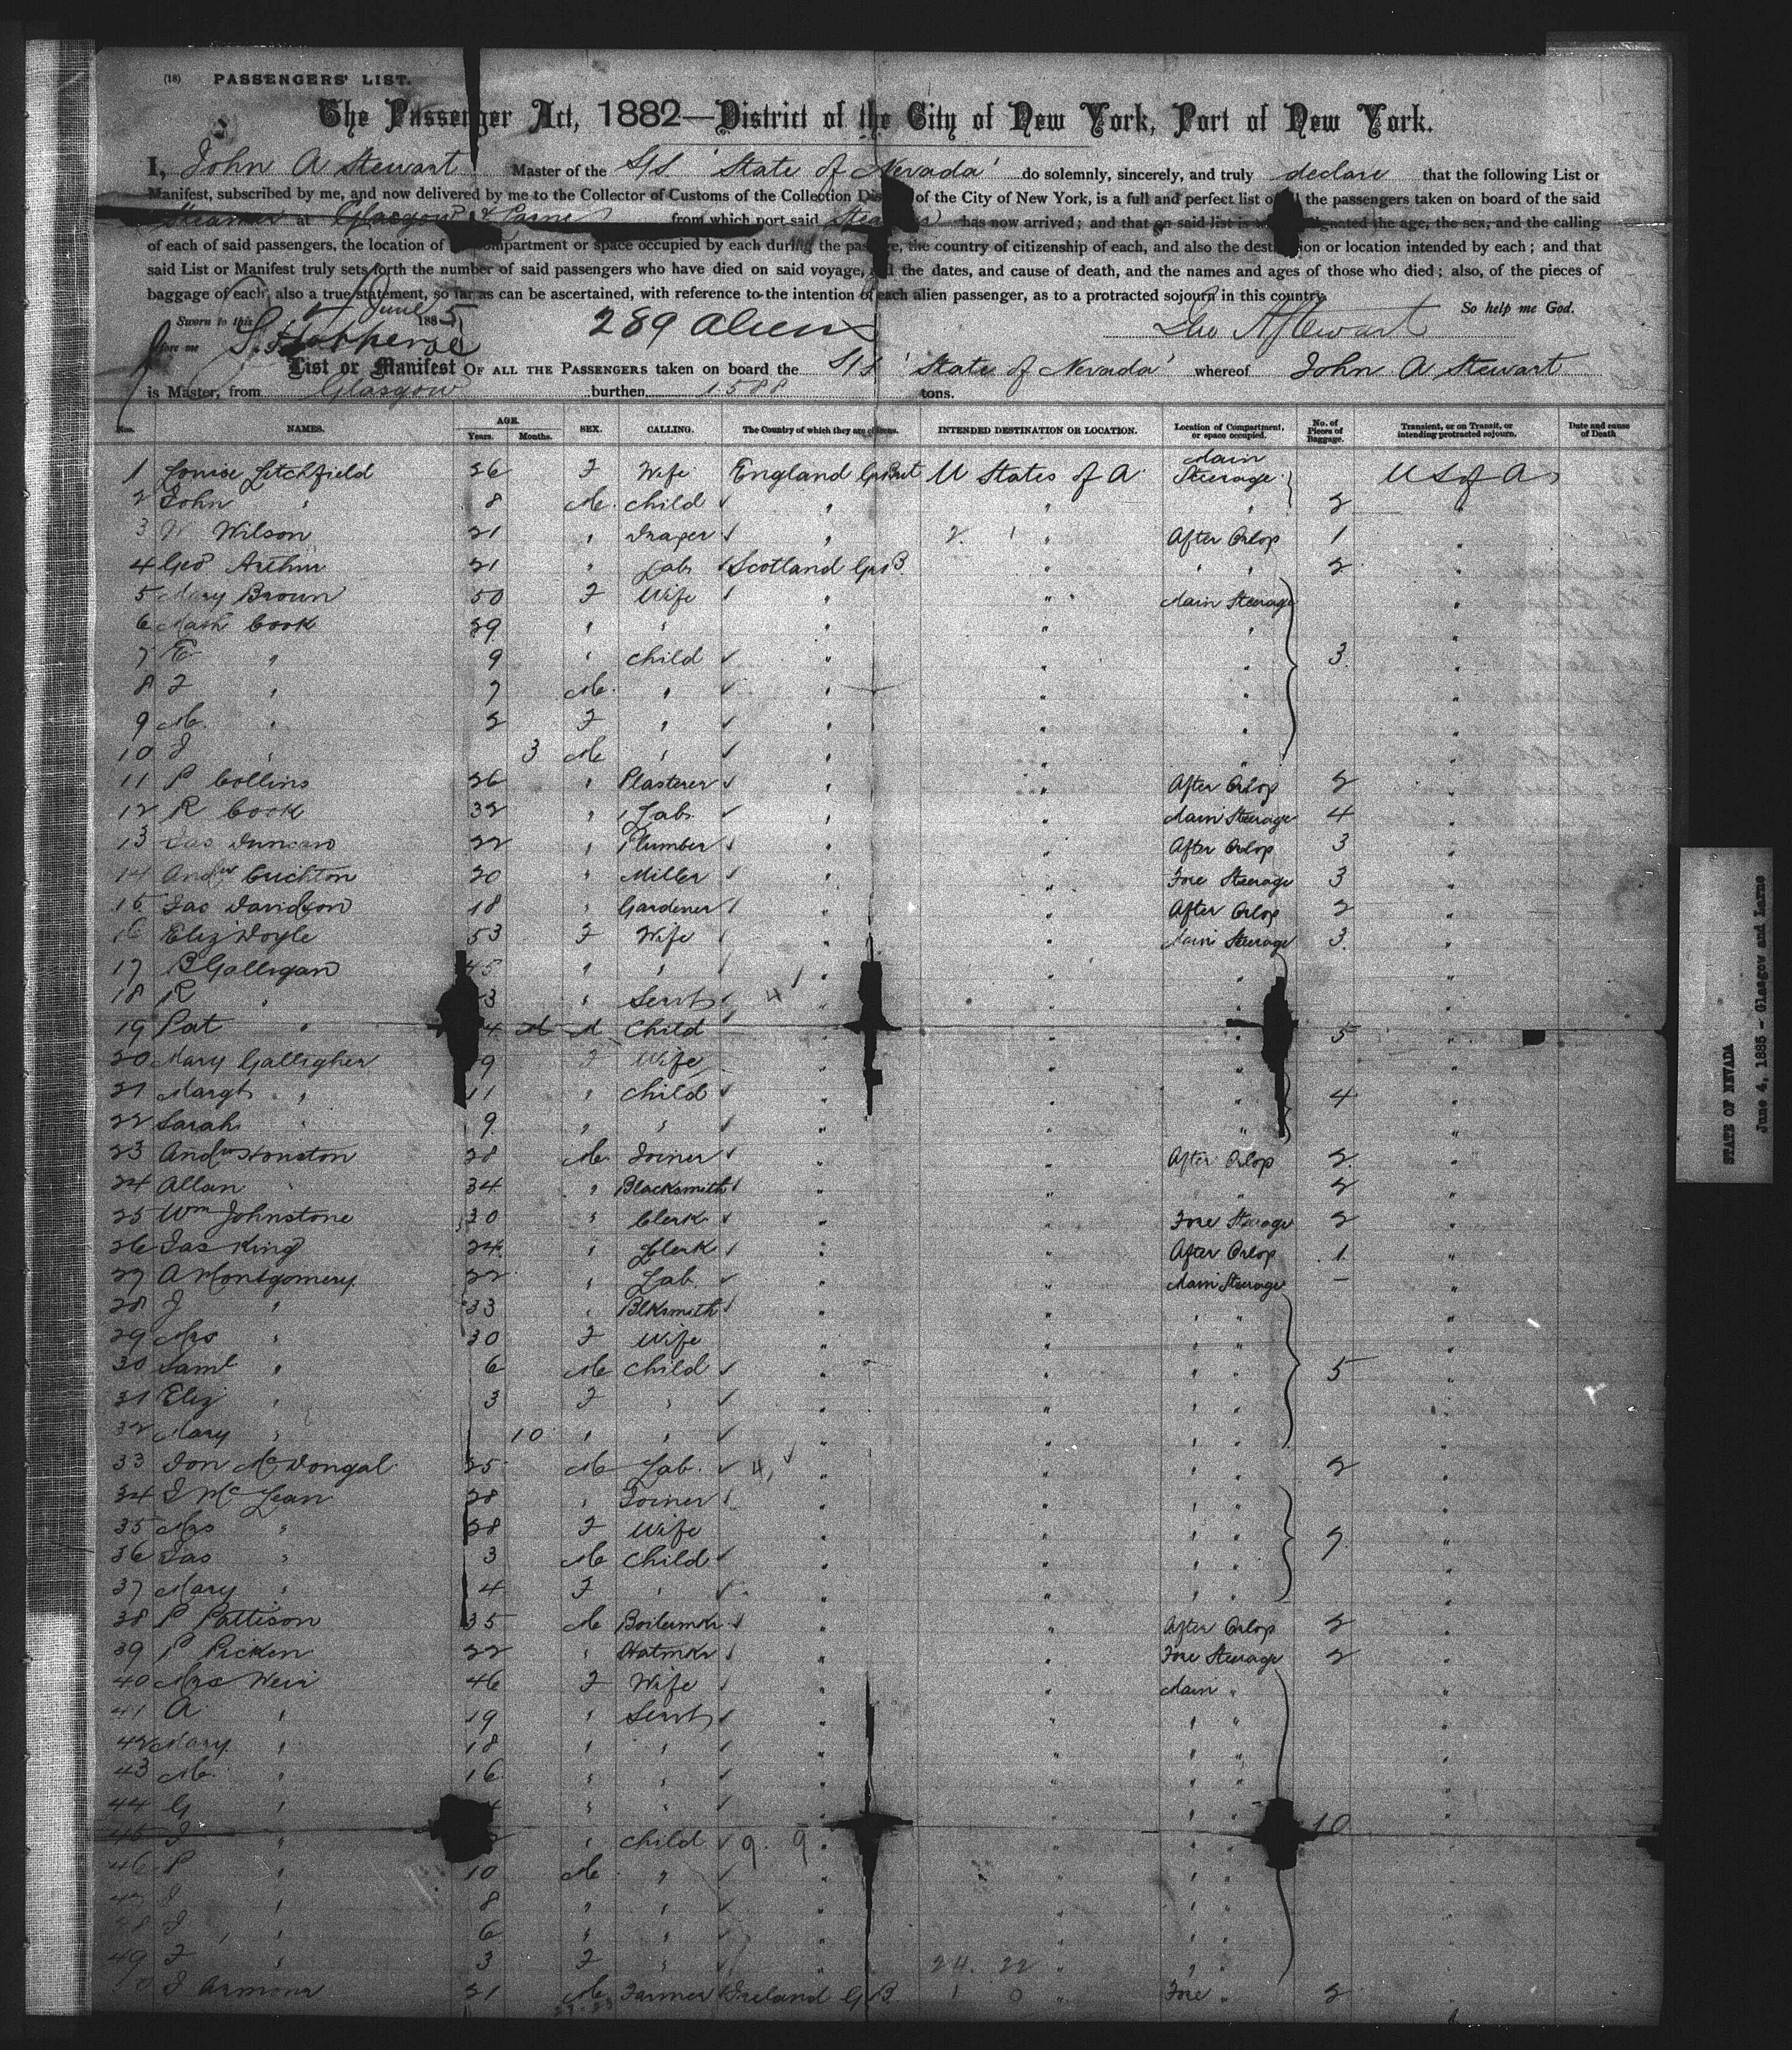 (18) PASSENGERS' LIST.
The Passenger Act, 1882—District of the City of New York, Port of New York.
I, John A Stewart Master of the S/S 'State of Nevada' do solemnly, sincerely, and truly declare that the following List or
Manifest, subscribed by me, and now delivered by me to the Collector of Customs of the Collection of the City of New York, is a full and perfect list the passengers taken on board of the said
Steamer at Glasgow & Larne from which port said Steamer has now arrived; and that on said list is the age, the sex, and the calling
of each of said passengers, the location of compartment or space occupied by each during the passage, the country of citizenship of each, and also the destination or location intended by each; and that
said List or Manifest truly sets forth the number of said passengers who have died on said voyage, the dates, and cause of death, and the names and ages of those who died; also, of the pieces of
baggage of each, also a true statement, so far as can be ascertained, with reference to the intention of each alien passenger, as to a protracted sojourn in this country.
So help me God.
Sworn to this 4 June 1885
before me 289 Aliens Jno A Stewart
List or Manifest OF ALL THE PASSENGERS taken on board the S/S 'State of Nevada' whereof John A Stewart
is Master, from Glasgow burthen 1588 tons.
Nos. NAMES. AGE. Years. Months. SEX. CALLING. The Country of which they are citizens. INTENDED DESTINATION OR LOCATION. Location of Compartment, or space occupied. No. of Pieces of Baggage. Transient, or on Transit, or intending protracted sojourn. Date and cause of Death
1 Louise Litchfield 26 F Wife England Gt Brit U States of A Main Steerage U S of A
2 John " 8 M child " " " 2 "
3 W Wilson 21 " Draper " " After Orlop 1 "
4 Geo Arthur 21 " Lab Scotland Gt B. " " " 2 "
5 Mary Brown 50 F Wife " " Main Steerage "
6 Cook 29 " " " " " "
7 E " 9 " child " " " 3 "
8 F " 7 M " " " " "
9 M " 2 F " " " " "
10 J " 3 M " " " " "
11 P Collins 26 " Plasterer " " After Orlop 2 "
12 R Cook 32 " Lab " " Main Steerage 4 "
13 Jas Duncan 22 " Plumber " " After Orlop 3 "
14 Andw Crichton 20 " Miller " " Fore Steerage 3 "
15 Jas Davidson 18 " Gardener " " After Orlop 2 "
16 Eliz Doyle 53 F Wife " " Main Steerage 3 "
17 B Galligan 45 " " " " " "
18 R " 3 " Servt " " " "
19 Pat " 4 M Child " " " 5 "
20 Mary Galligher 9 F Wife " " " "
21 Margt " 11 " child " " " 4 "
22 Sarah " 9 " " " " " "
23 Andw Houston 28 M Joiner " " After Orlop 2 "
24 Allan " 34 " Blacksmith " " " " 2 "
25 Wm Johnstone 30 " Clerk " " Fore Steerage 2 "
26 Jas King 24 " Clerk " " After Orlop 1 "
27 A Montgomery 22 " Lab " " Main Steerage – "
28 J " 33 " Blksmith " " " " "
29 Mrs " 30 F Wife " " " " "
30 Saml " 6 M Child " " " " 5 "
31 Eliz " 3 F " " " " " "
32 Mary " 10 " " " " " " "
33 Don McDongal 25 M Lab " " " " 2 "
34 J McLean 28 " Joiner " " " " "
35 Mrs " 28 F Wife " " " " "
36 Jas " 3 M Child " " " " 7 "
37 Mary " 4 F " " " " " "
38 P Pattison 35 M Boilermkr " " After Orlop 2 "
39 P Picken 22 " Hatmkr " " Fore Steerage 2 "
40 Mrs Weir 46 F Wife " " Main " "
41 A " 19 " Servt " " " " "
42 Mary " 18 " " " " " " "
43 M " 16 " " " " " " "
44 G " " " " " " " "
45 J " " child " " " " 10 "
46 P " 10 M " " " " " "
47 J " 8 " " " " " " "
48 J " 6 " " " " " " "
49 F " 3 F " " " " " "
50 J Armour 21 M Farmer Ireland G B " Fore " 2 "
STATE OF NEVADA
June 4, 1885 - Glasgow and Larne